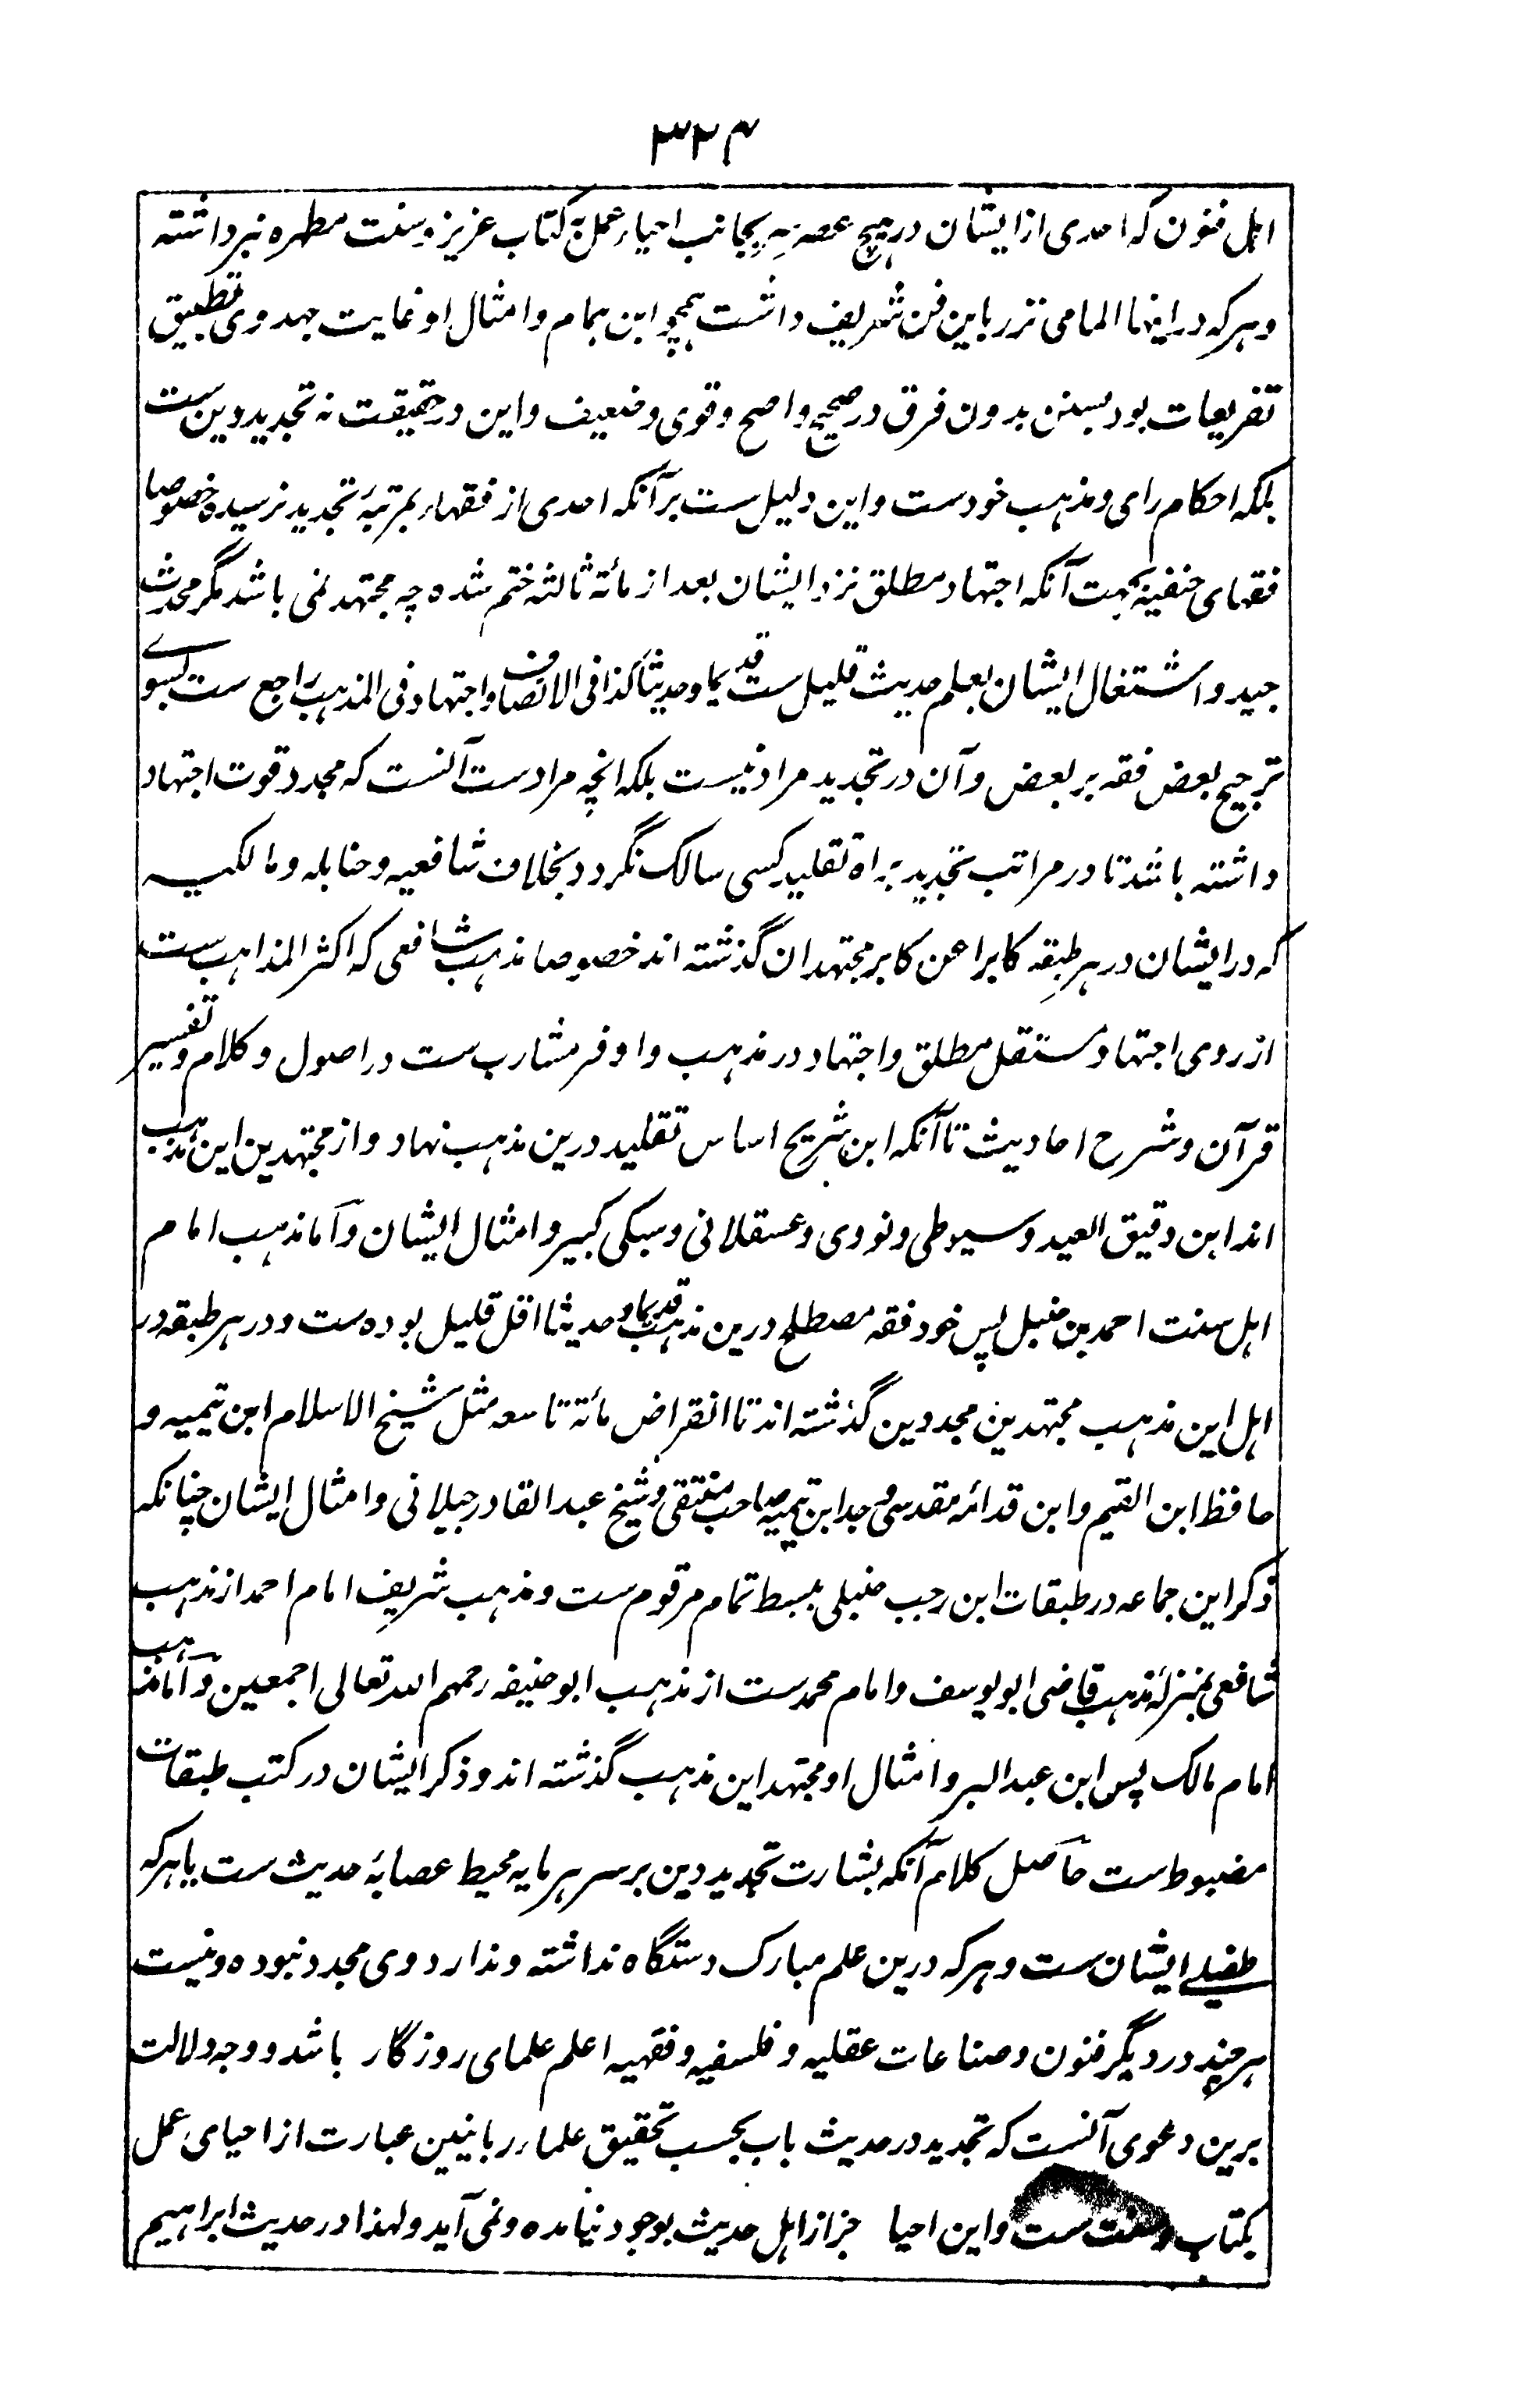 ۳۲۴
اہل فنون کہ احدی ازایشان درہیچ عصر پے بجانب احیاء عمل بہ کتاب عزیز و سنت مطہرہ نبرداشتہ
وہرکہ دراینہا المامی نزر باین فن شریف داشت ہمچو ابن ہمام وامثال او غایت جہد وی تطبیق
تفریعات بود بسنن بدون فرق درصحیح واصح وقوی وضعیف واین درحقیقت نہ تجدید دین ست
بلکہ احکام رای ومذہب خودست واین دلیل ست برآنکہ احدی از فقہاء بمرتبۂ تجدید نرسیدہ خصوصا
فقہای حنفیہ بجہت آنکہ اجتہاد مطلق نزد ایشان بعد از مائۃ ثالثہ ختم شدہ چہ مجتہد نمی باشد مگر محدث
جید واشتغال ایشان بعلم حدیث قلیل ست قدیما وحدیثا کذا فی الانصاف واجتہاد فی المذہب راجع ست بسوے
ترجیح بعض فقہ بر بعض وآن در تجدید مراد نیست بلکہ انچہ مرادست آنست کہ مجدد قوت اجتہاد
داشتہ باشد تا در مراتب تجدید براہ تقلید کسی سالک نگردد بخلاف شافعیہ وحنابلہ ومالکیہ
کہ در ایشان در ہر طبقہ کابرا عن کابر مجتہدان گذشتہ اند خصوصا مذہب شافعی کہ اکثر المذاہب ست
از روی اجتہاد مستقل مطلق واجتہاد در مذہب واوفر مشارب ست در اصول وکلام وتفسیر
قرآن وشرح احادیث تاآنکہ ابن شریح اساس تقلید درین مذہب نہاد واز مجتہدین این مذہب
اند ابن دقیق العید وسیوطی ونووی وعسقلانی وسبکی کبیر وامثال ایشان واما مذہب امام
اہل سنت احمد بن حنبل پس خود فقہ مصطلح درین مذہب قدیما وحدیثا اقل قلیل بودہ ست ودر ہر طبقہ در
اہل این مذہب مجتہدین مجددین گذشتہ اند تا انقراض مائۃ تاسعہ مثل شیخ الاسلام ابن تیمیہ و
حافظ ابن القیم وابن قدامہ مقدسی وجد ابن تیمیہ صاحب منتقی وشیخ عبد القادر جیلانی وامثال ایشان چنانکہ
ذکر این جماعہ در طبقات ابن رجب حنبلی ببسط تمام مرقوم ست ومذہب شریف امام احمد از مذہب
شافعی بمنزلۂ مذہب قاضی ابو یوسف وامام محمدست از مذہب ابو حنیفہ رحمہم اللہ تعالی اجمعین واما مذہب
امام مالک پس ابن عبد البر وامثال او مجتہد این مذہب گذشتہ اند وذکر ایشان در کتب طبقات
مضبوط ست حاصل کلام آنکہ بشارت تجدید دین بر سر ہر مایہ محیط عصابۂ حدیث ست یا ہرکہ
طفیلے ایشان ست وہرکہ درین علم مبارک دستگاہ نداشتہ وندارد وی مجدد نبودہ ونیست
ہرچند در دیگر فنون وصناعات عقلیہ وفلسفیہ وفقہیہ اعلم علمای روزگار باشد ووجہ دلالت
برین دعوی آنست کہ تجدید در حدیث باب بحسب تحقیق علماء ربانیین عبارت از احیای عمل
بکتاب وسنت ست واین احیا جز از اہل حدیث بوجود نیامدہ ونمی آید ولہذا در حدیث ابراہیم